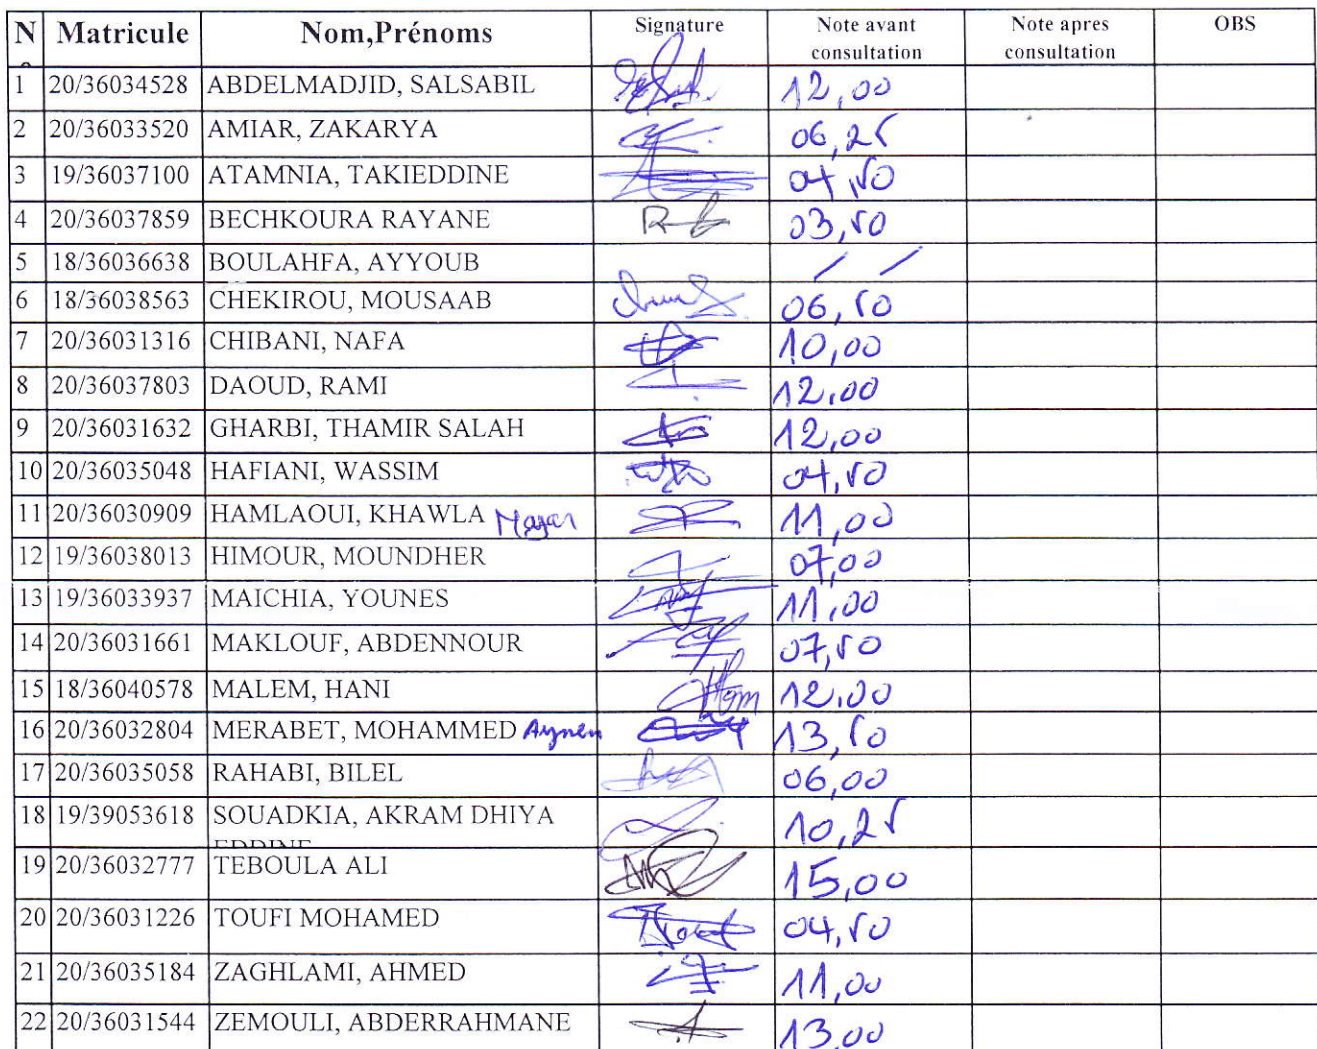 N° Matricule Nom,Prénoms Signature Note avant consultation Note apres consultation OBS
1 20/36034528 ABDELMADJID, SALSABIL 12,00
2 20/36033520 AMIAR, ZAKARYA 06,25
3 19/36037100 ATAMNIA, TAKIEDDINE 04,50
4 20/36037859 BECHKOURA RAYANE 03,50
5 18/36036638 BOULAHFA, AYYOUB / /
6 18/36038563 CHEKIROU, MOUSAAB 06,50
7 20/36031316 CHIBANI, NAFA 10,00
8 20/36037803 DAOUD, RAMI 12,00
9 20/36031632 GHARBI, THAMIR SALAH 12,00
10 20/36035048 HAFIANI, WASSIM 04,50
11 20/36030909 HAMLAOUI, KHAWLA 11,00
12 19/36038013 HIMOUR, MOUNDHER 07,00
13 19/36033937 MAICHIA, YOUNES 11,00
14 20/36031661 MAKLOUF, ABDENNOUR 07,50
15 18/36040578 MALEM, HANI 12,00
16 20/36032804 MERABET, MOHAMMED Aymen 13,50
17 20/36035058 RAHABI, BILEL 06,00
18 19/39053618 SOUADKIA, AKRAM DHIYA 10,25
EDDINE
19 20/36032777 TEBOULA ALI 15,00
20 20/36031226 TOUFI MOHAMED 04,50
21 20/36035184 ZAGHLAMI, AHMED 11,00
22 20/36031544 ZEMOULI, ABDERRAHMANE 13,00